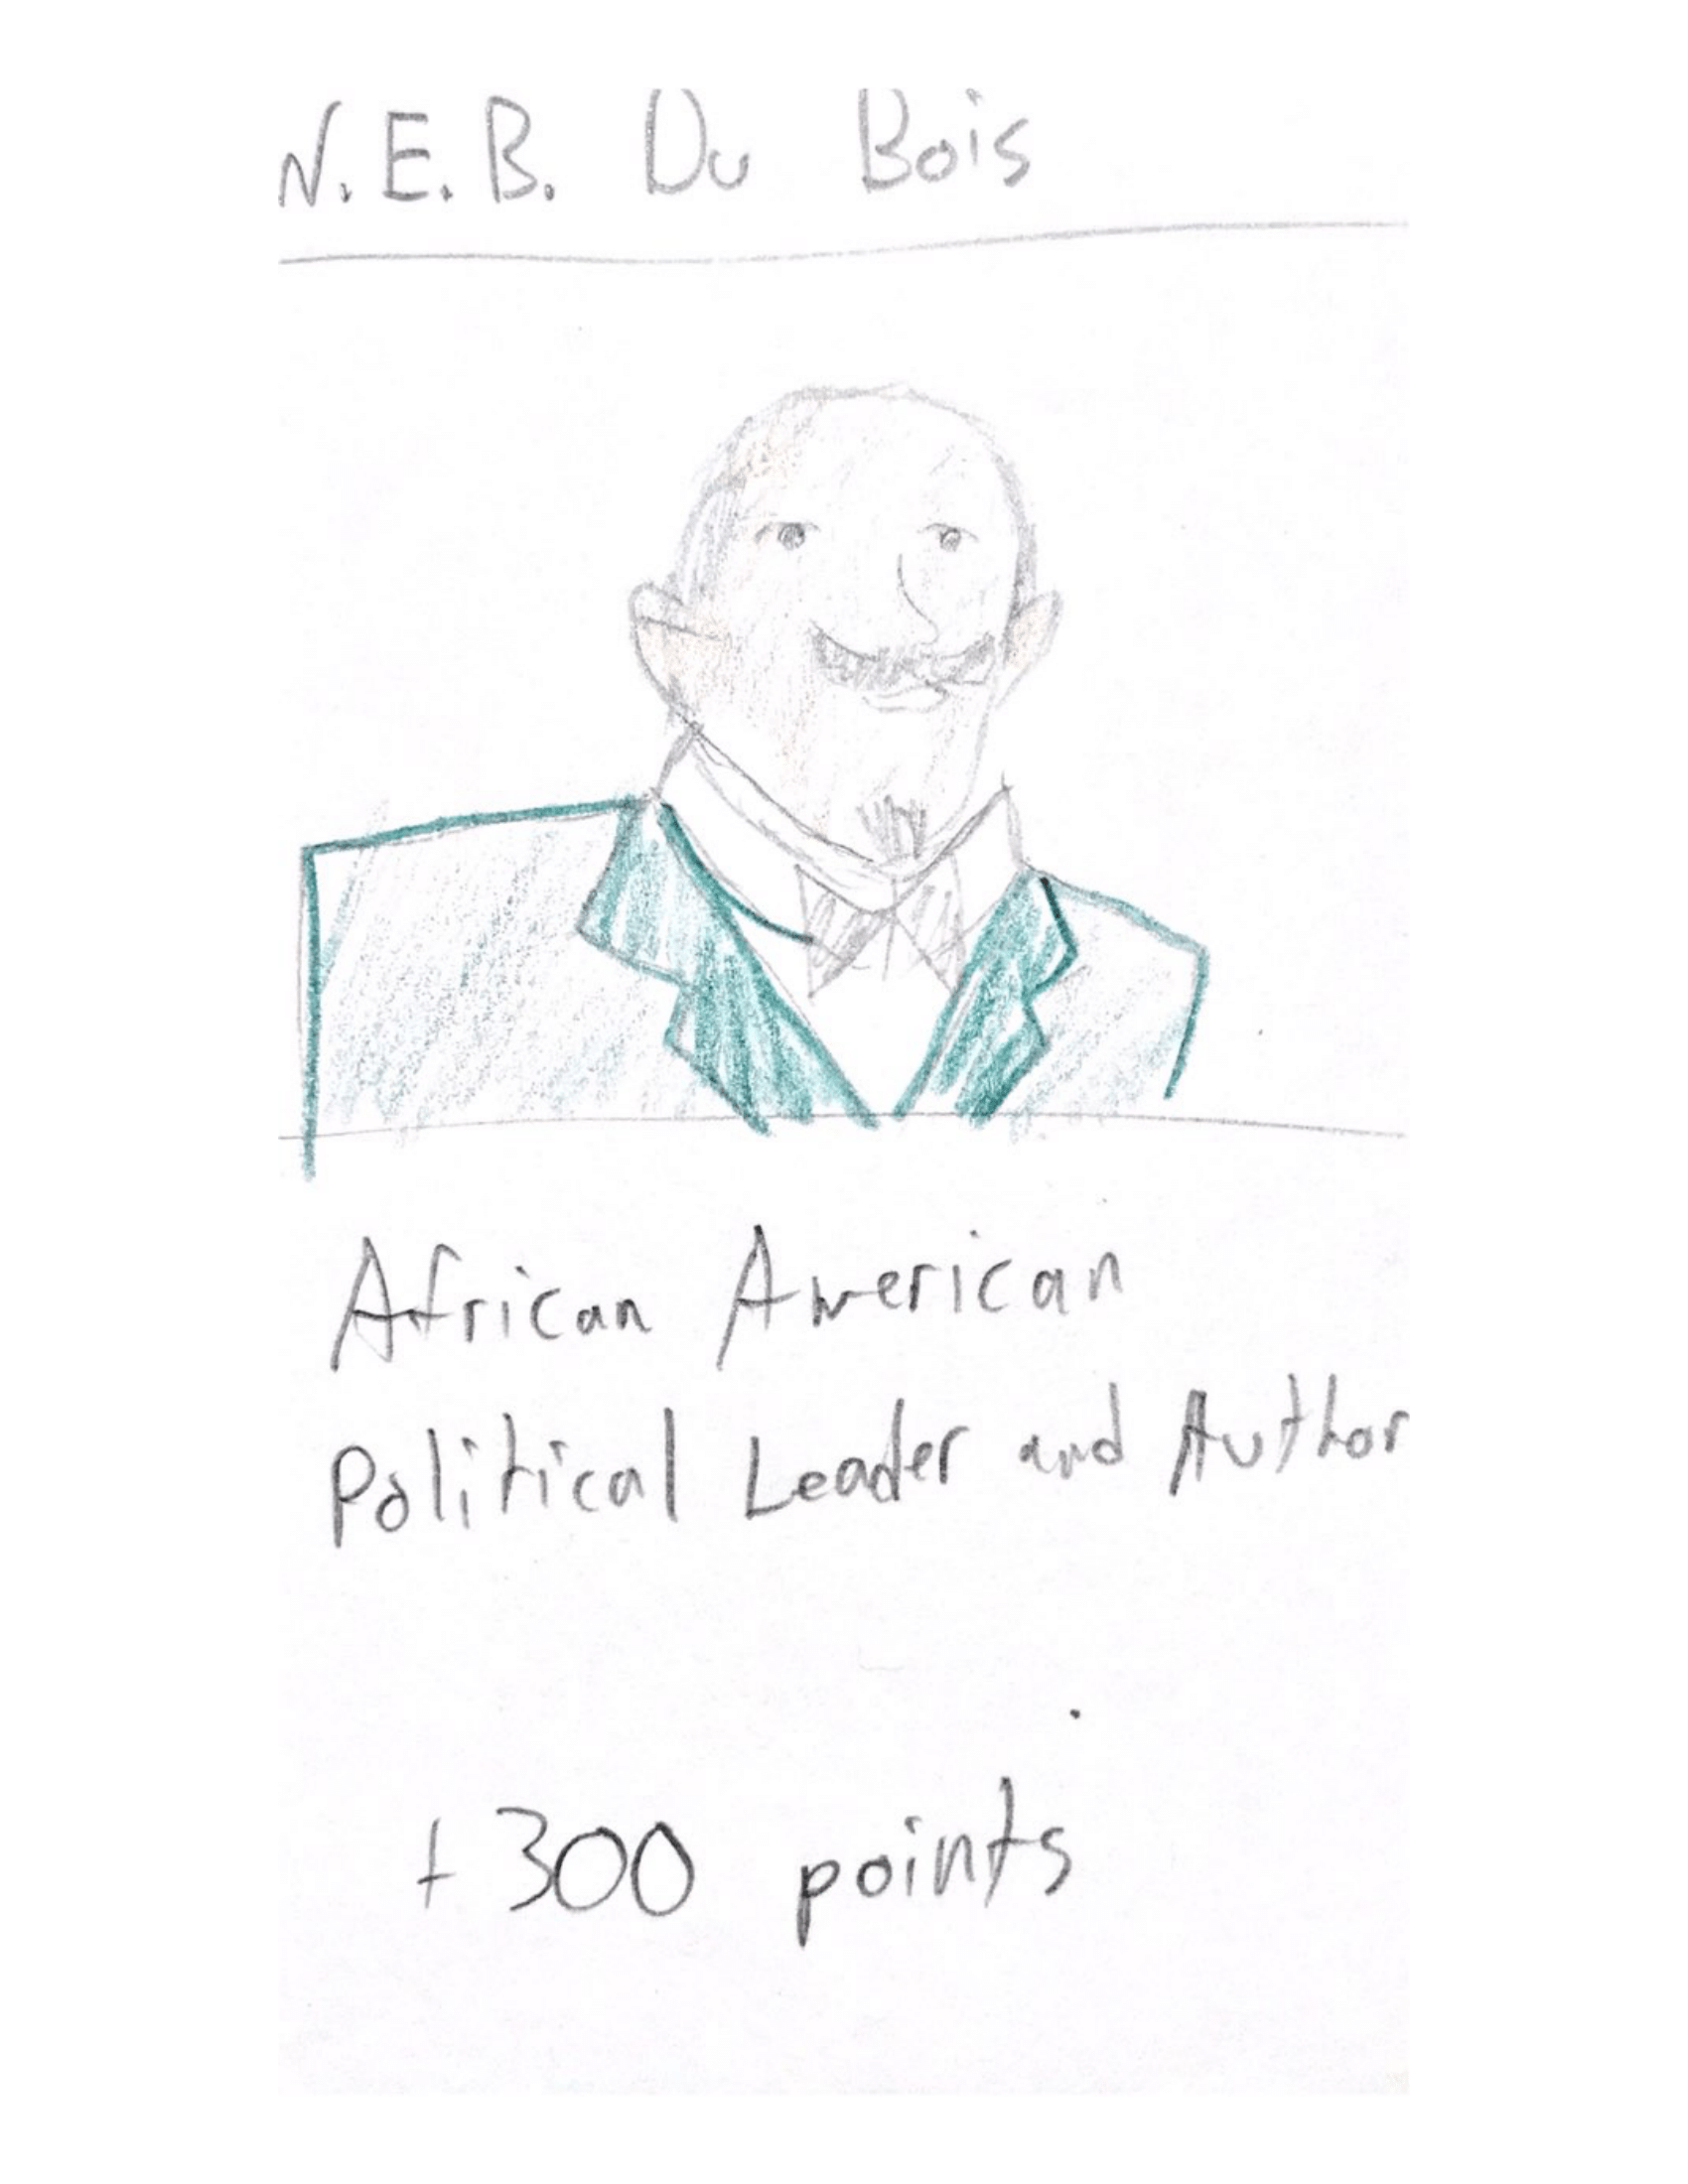 N.E.B. Du Bois
African American
Political Leader and Author
+300 points